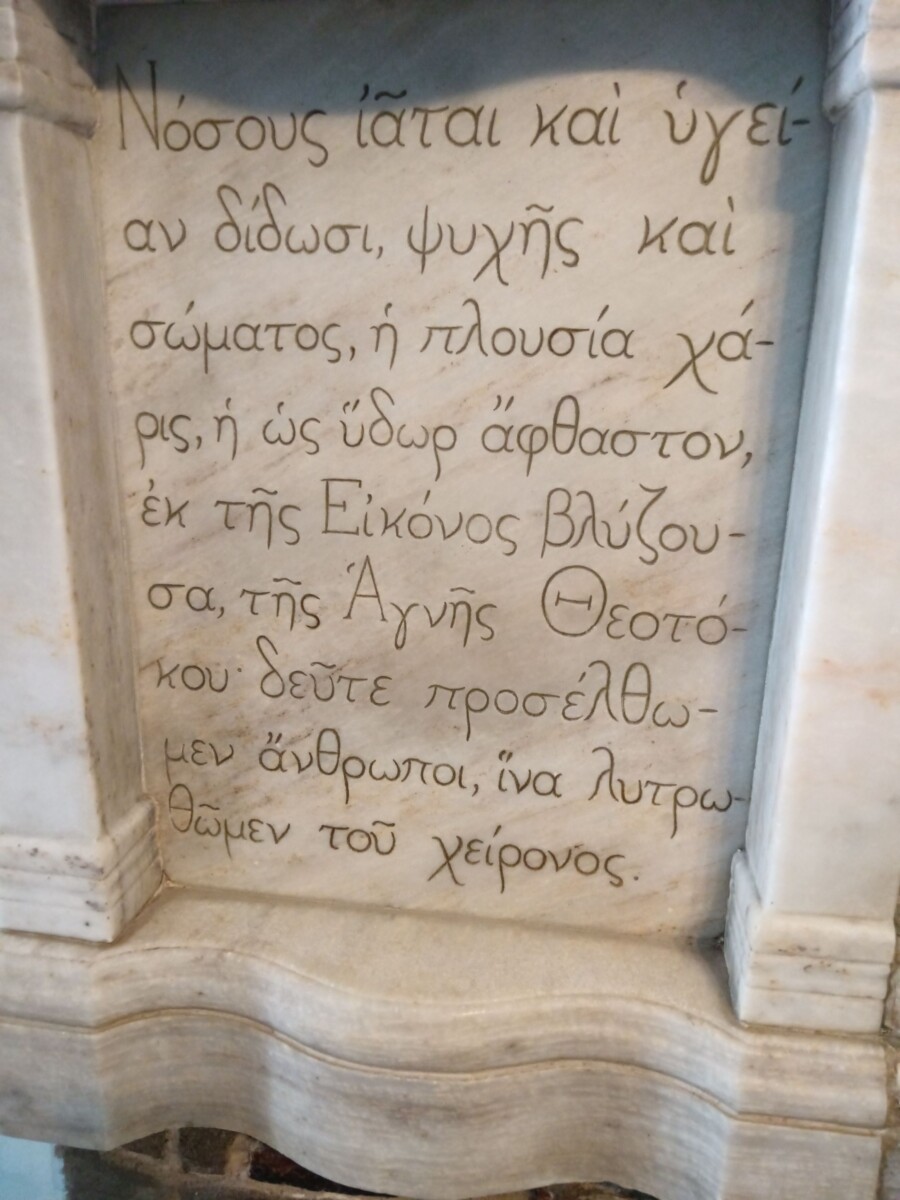 Νόσους ἰᾶται καὶ ὑγεί-
αν δίδωσι, ψυχῆς καὶ
σώματος, ἡ πλουσία χά-
ρις, ἡ ὡς ὕδωρ ἄφθαστον,
ἐκ τῆς Εἰκόνος βλύζου-
σα, τῆς Ἁγνῆς Θεοτό-
κου· δεῦτε προσέλθω-
μεν ἄνθρωποι, ἵνα λυτρω-
θῶμεν τοῦ χείρονος.